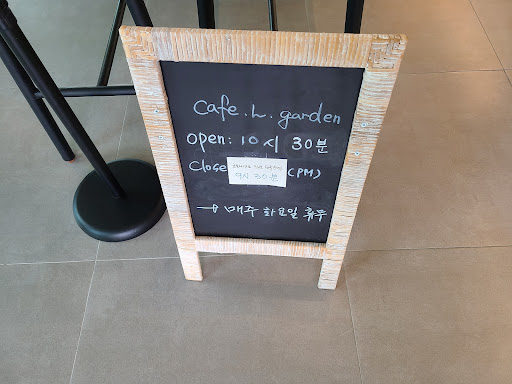 Cafe.L.garden
open: 10시 30분
Close 9시 30분 (PM)
→ 매주 화요일 휴무